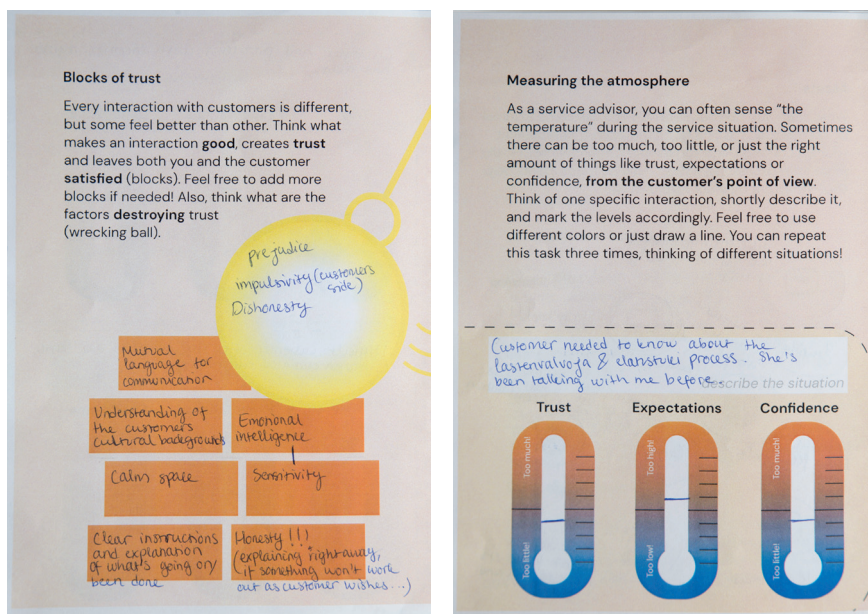 Blocks of trust
Every interaction with customers is different,
but some feel better than other. Think what
makes an interaction good, creates trust
and leaves both you and the customer
satisfied (blocks). Feel free to add more
blocks if needed! Also, think what are the
factors destroying trust
(wrecking ball).
Prejudice
impulsivity (customers
side)
Dishonesty
Mutual
language for
communication
Understanding of
the customers
cultural backgrounds
Emotional
intelligence
Calm space
Sensitivity
Clear instructions
and explanation
of what's going on/
been done
Honesty!!!
(explaining right away,
if something won't work
out as customer wishes...)
Measuring the atmosphere
As a service advisor, you can often sense “the
temperature” during the service situation. Sometimes
there can be too much, too little, or just the right
amount of things like trust, expectations or
confidence, from the customer’s point of view.
Think of one specific interaction, shortly describe it,
and mark the levels accordingly. Feel free to use
different colors or just draw a line. You can repeat
this task three times, thinking of different situations!
Customer needed to know about the
lastenvalvoja & elatstuki process. She's
been talking with me before.
describe the situation
Trust
Expectations
Confidence
Too much!
Too little!
Too high!
Too low!
Too much!
Too little!